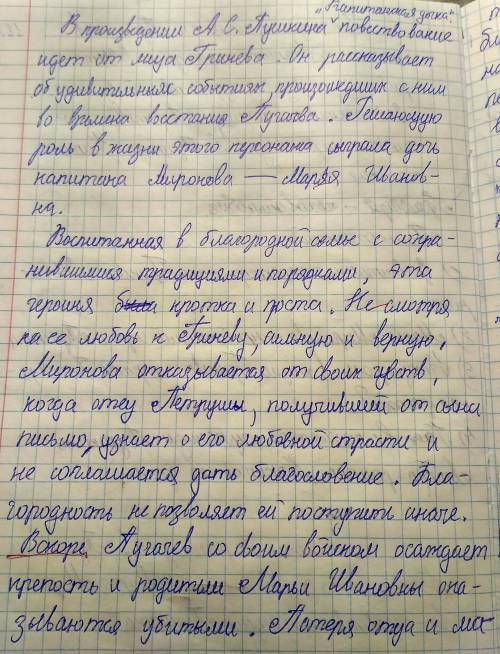 "Капитанская дочка"
В произведении А.С. Пушкина повествование
идет от лица Гринева. Он рассказывает
об удивительных событиях, произошедших с ним
во времена восстания Пугачева. Решающую
роль в жизни этого персонажа сыграла дочь
капитана Миронова — Марья Иванов-
на.
Воспитанная в благородной семье с сохра-
нившимися традициями и порядками, эта
героиня кротка и проста. Не смотря
на ее любовь к Гриневу, сильную и верную,
Миронова отказывается от своих чувств,
когда отец Петруши, получивший от сына
письмо, узнает о его любовной страсти и
не соглашается дать благословение. Бла-
городность не позволяет ей поступить иначе.
Вскоре, Пугачев со своим войском осаждает
крепость и родители Марьи Ивановны ока-
зываются убитыми. Потеря отца и ма-